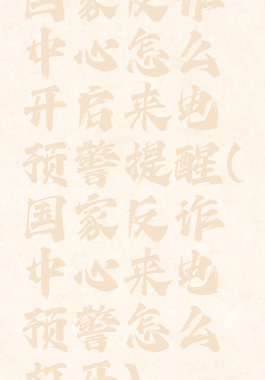 国家反诈
中心怎么
开启来电
预警提醒(
国家反诈
中心来电
预警怎么
打开)